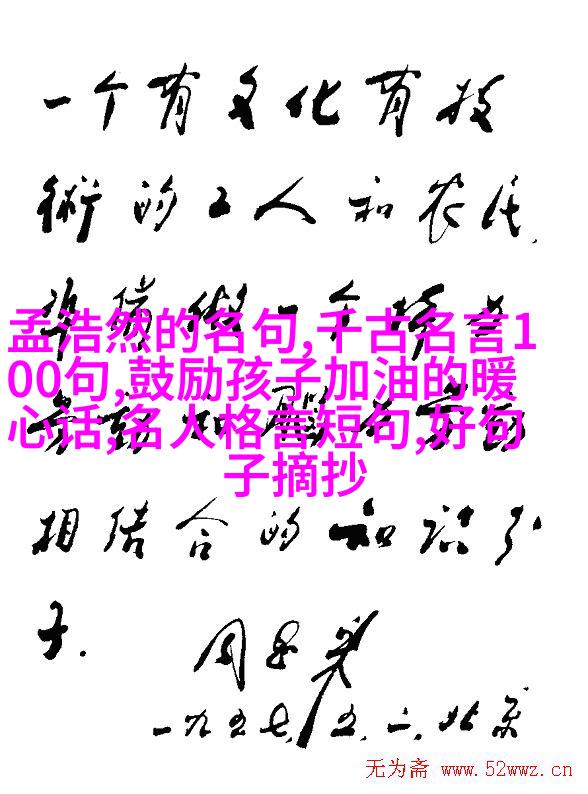 一个有文化有技
術的工人和农民,
孟浩然的名句,千古名言1
00句,鼓励孩子加油的暖
心话,名人格言短句,好句
子摘抄
相结合的知识分
子.
周恩来
一九五七.五.一.北京
无为斋 www.52wwz.cn